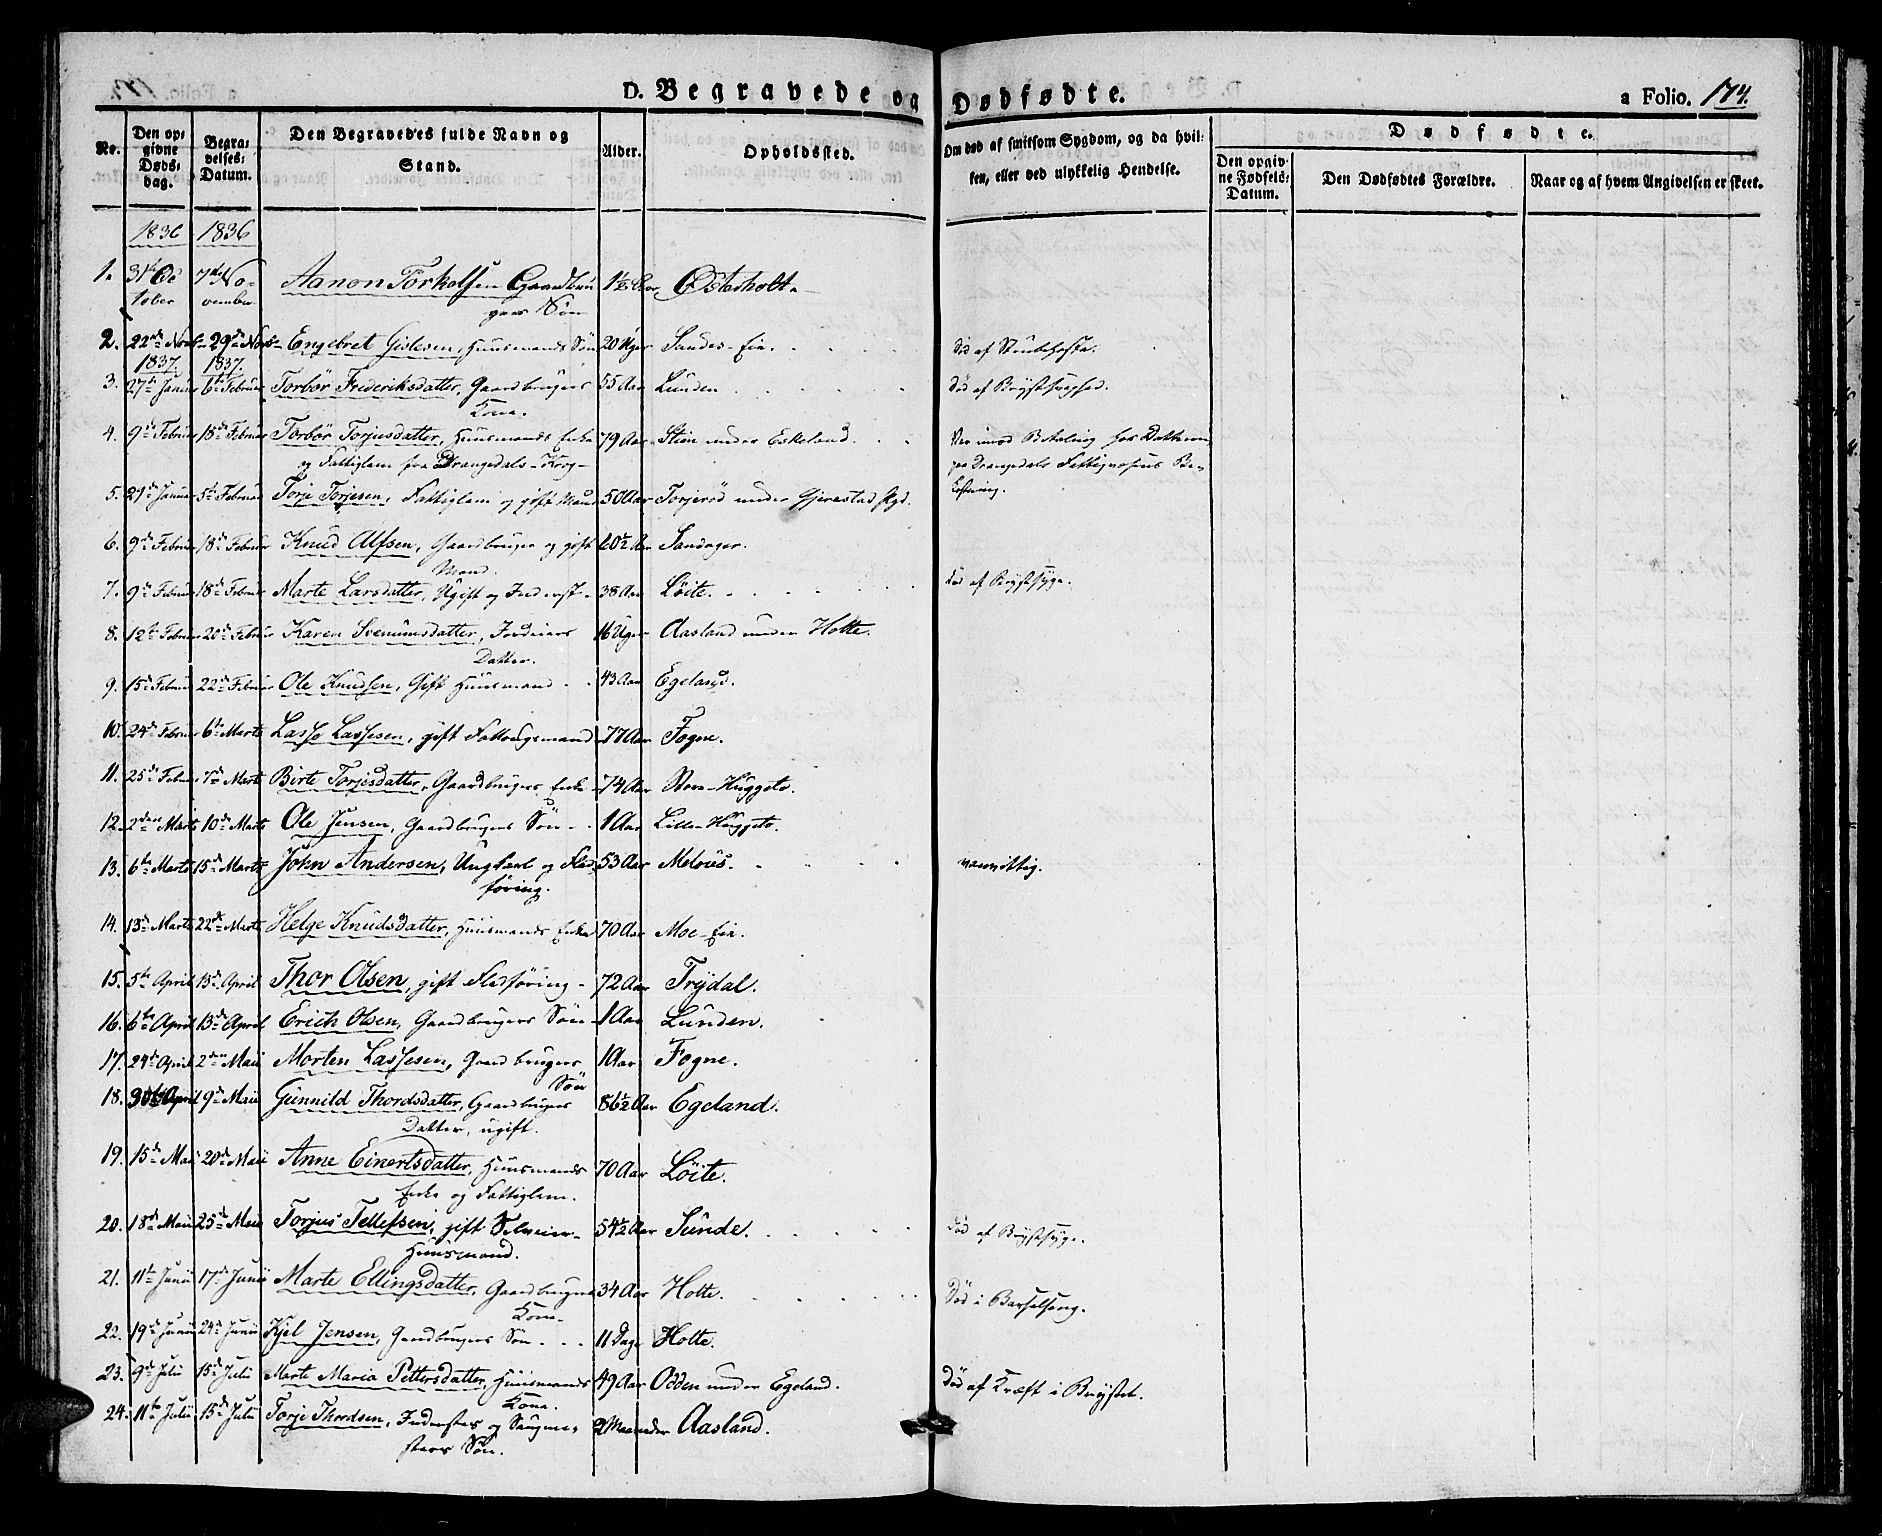 D. Begravede og Dødfødte.
a Folio. 174.
No.
Den opgivne Døds-dag.
Begravelses-Datum.
Den Begravedes fulde Navn og Stand.
Alder.
Opholdssted.
Om død af smitsom Sygdom, og da hvilken, eller ved ulykkelig Hendelse.
Dødfødte.
Den opgivne Fødsels-Datum.
Den Dødfødtes Forældre.
Naar og af hvem Angivelsen er skeet.
1836 1836
1. 31te October 7de November Aanon Torkelsen Gaardbrugers Søn 1½ Aar Østerholt.
2. 22de Novbr 29de Novbr Engebret Gislesen, Huusmands Søn 20 Uger Sandes-Eie. Død af Strubehoste.
1837. 1837.
3. 27de Januar 6te Februar Torbør Frederiksdatter, Gaardbrugers Kone. 55 Aar Lunden Død af Brystsvaghed.
4. 9de Februar 18de Februar Torbør Torjusdatter, Huusmands Enke og Fattiglem fra Drangedals 79 Aar Stien under Eskeland. Var imod Betaling hos Datteren paa Drangedals Fattigvæsens
5. 29de Januar 5te Februar Torje Torjesen, Fattiglem og gift Mand 50 Aar Torjerød under Gjerestad Pgd.
6. 9de Februar 18de Februar Knud Alfsen, Gaardbruger og gift Mand. 60½ Aar Sandager.
7. 9de Februar 18de Februar Marte Larsdatter, Ugift og Inderst 38 Aar Löite. Død af Brystsyge.
8. 12te Februar 20de Februar Karen Svenumsdatter, Jordeiers Datter. 16 Uger Aasland under Holte.
9. 15de Februar 22de Februar Ole Knudsen, Gift Huusmand 43 Aar Egeland.
10. 24de Februar 6te Marts Lasse Lassesen, gift Fattigmand 77 Aar Fogne.
11. 25de Februar 7de Marts Birte Torjesdatter, Gaardbrugers Enke 74 Aar Store-Huggeto.
12. 2den Marts 10de Marts Ole Jensen, Gaardbrugers Søn 1 Aar Lille-Huggeto.
13. 6te Marts 15de Marts John Andersen, Ungkarl og Fledføring. 53 Aar Melaas. vanvittig.
14. 13de Marts 22de Marts Helge Knudsdatter, Huusmands Enke 70 Aar Moe-Eie.
15. 5te April 13de April Thor Olsen, gift Fledføring 72 Aar Trydal.
16. 6te April 13de April Erich Olsen, Gaardbrugers Søn 1 Aar Lunden.
17. 24de April 2den Maii Morten Lassesen, Gaardbrugers Søn 1 Aar Fogne.
18. 30te April 9de Maii Gunnild Thordsdatter, Gaardbrugers Datter, ugift. 86½ Aar Egeland.
19. 15de Maii 20de Maii Anne Einertsdatter, Huusmands Enke og Fattiglem. 70 Aar Löite.
20. 18de Maii 25de Maii Torjus Tellefsen, gift Selveier-Huusmand. 54½ Aar Sunde. Død af Brystsyge.
21. 11te Junii 17de Junii Marte Ellingsdatter, Gaardbrugers Kone 34 Aar Holte. Død i Barselseng.
22. 19de Junii 24de Junii Kjel Jensen, Gaardbrugers Søn 11 Dage Holte.
23. 9de Julii 15de Julii Marte Maria Pettersdatter, Huusmands Kone. 49 Aar Odden under Egeland. Død af Kræft i Brystet.
24. 11te Julii 15de Julii Torje Thordsen, Inderstes og Søn. 2 Maaneder Aasland.